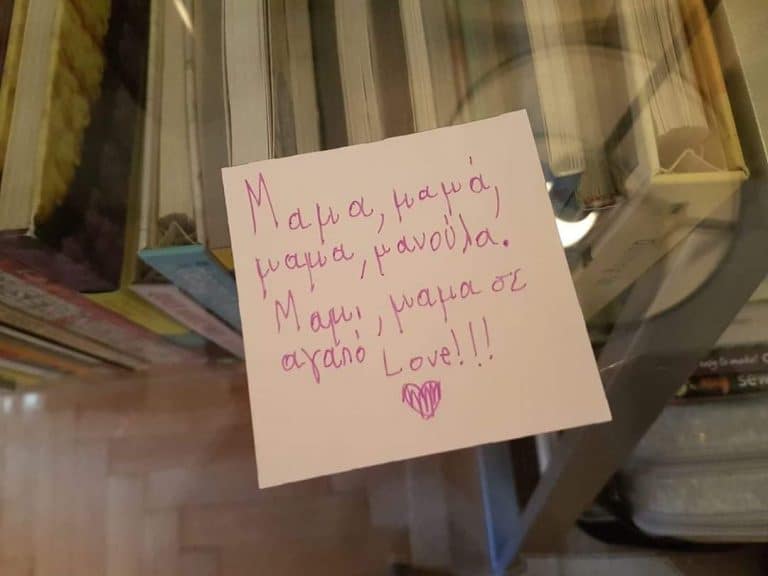 Μαμα, μαμά,
μαμα, μανούλα.
Μαμι, μαμα σε
αγαπό Love!!!